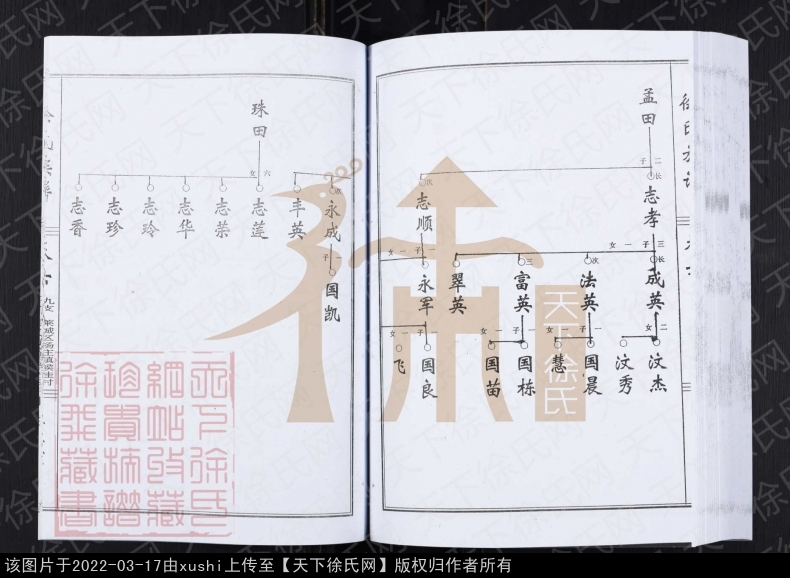 徐氏族谱
孟田
二子
长
志孝
次
志顺
三子一女
长
成英
次
法英
三
富英
翠英
一子一女
永军
二女
汶杰
汶秀
一子一女
国晨
慧
一子一女
国栋
国苗
一子一女
国良
飞
次
永成
丰英
一子
国凯
珠田
六女
志莲
志荣
志华
志玲
志珍
志香
九支
天下徐氏
天下徐氏网
该图片于2022-03-17由xushi上传至【天下徐氏网】版权归作者所有